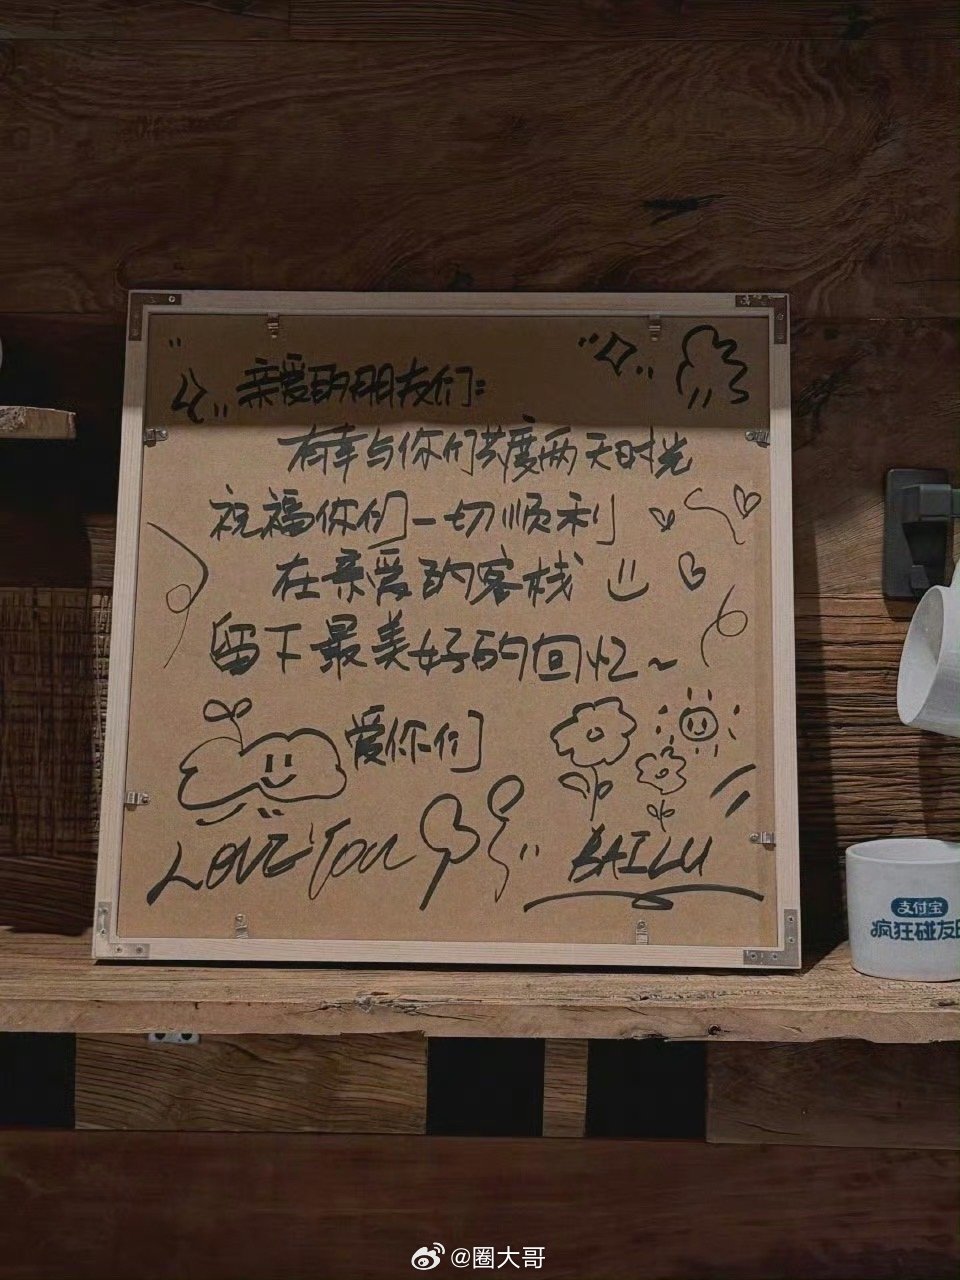 亲爱的朋友们：
有幸与你们共度两天时光
祝福你们一切顺利
在亲爱的客栈
留下最美好的回忆~
爱你们
LOVE You
BAILU
支付宝
疯狂碰友
@圈大哥